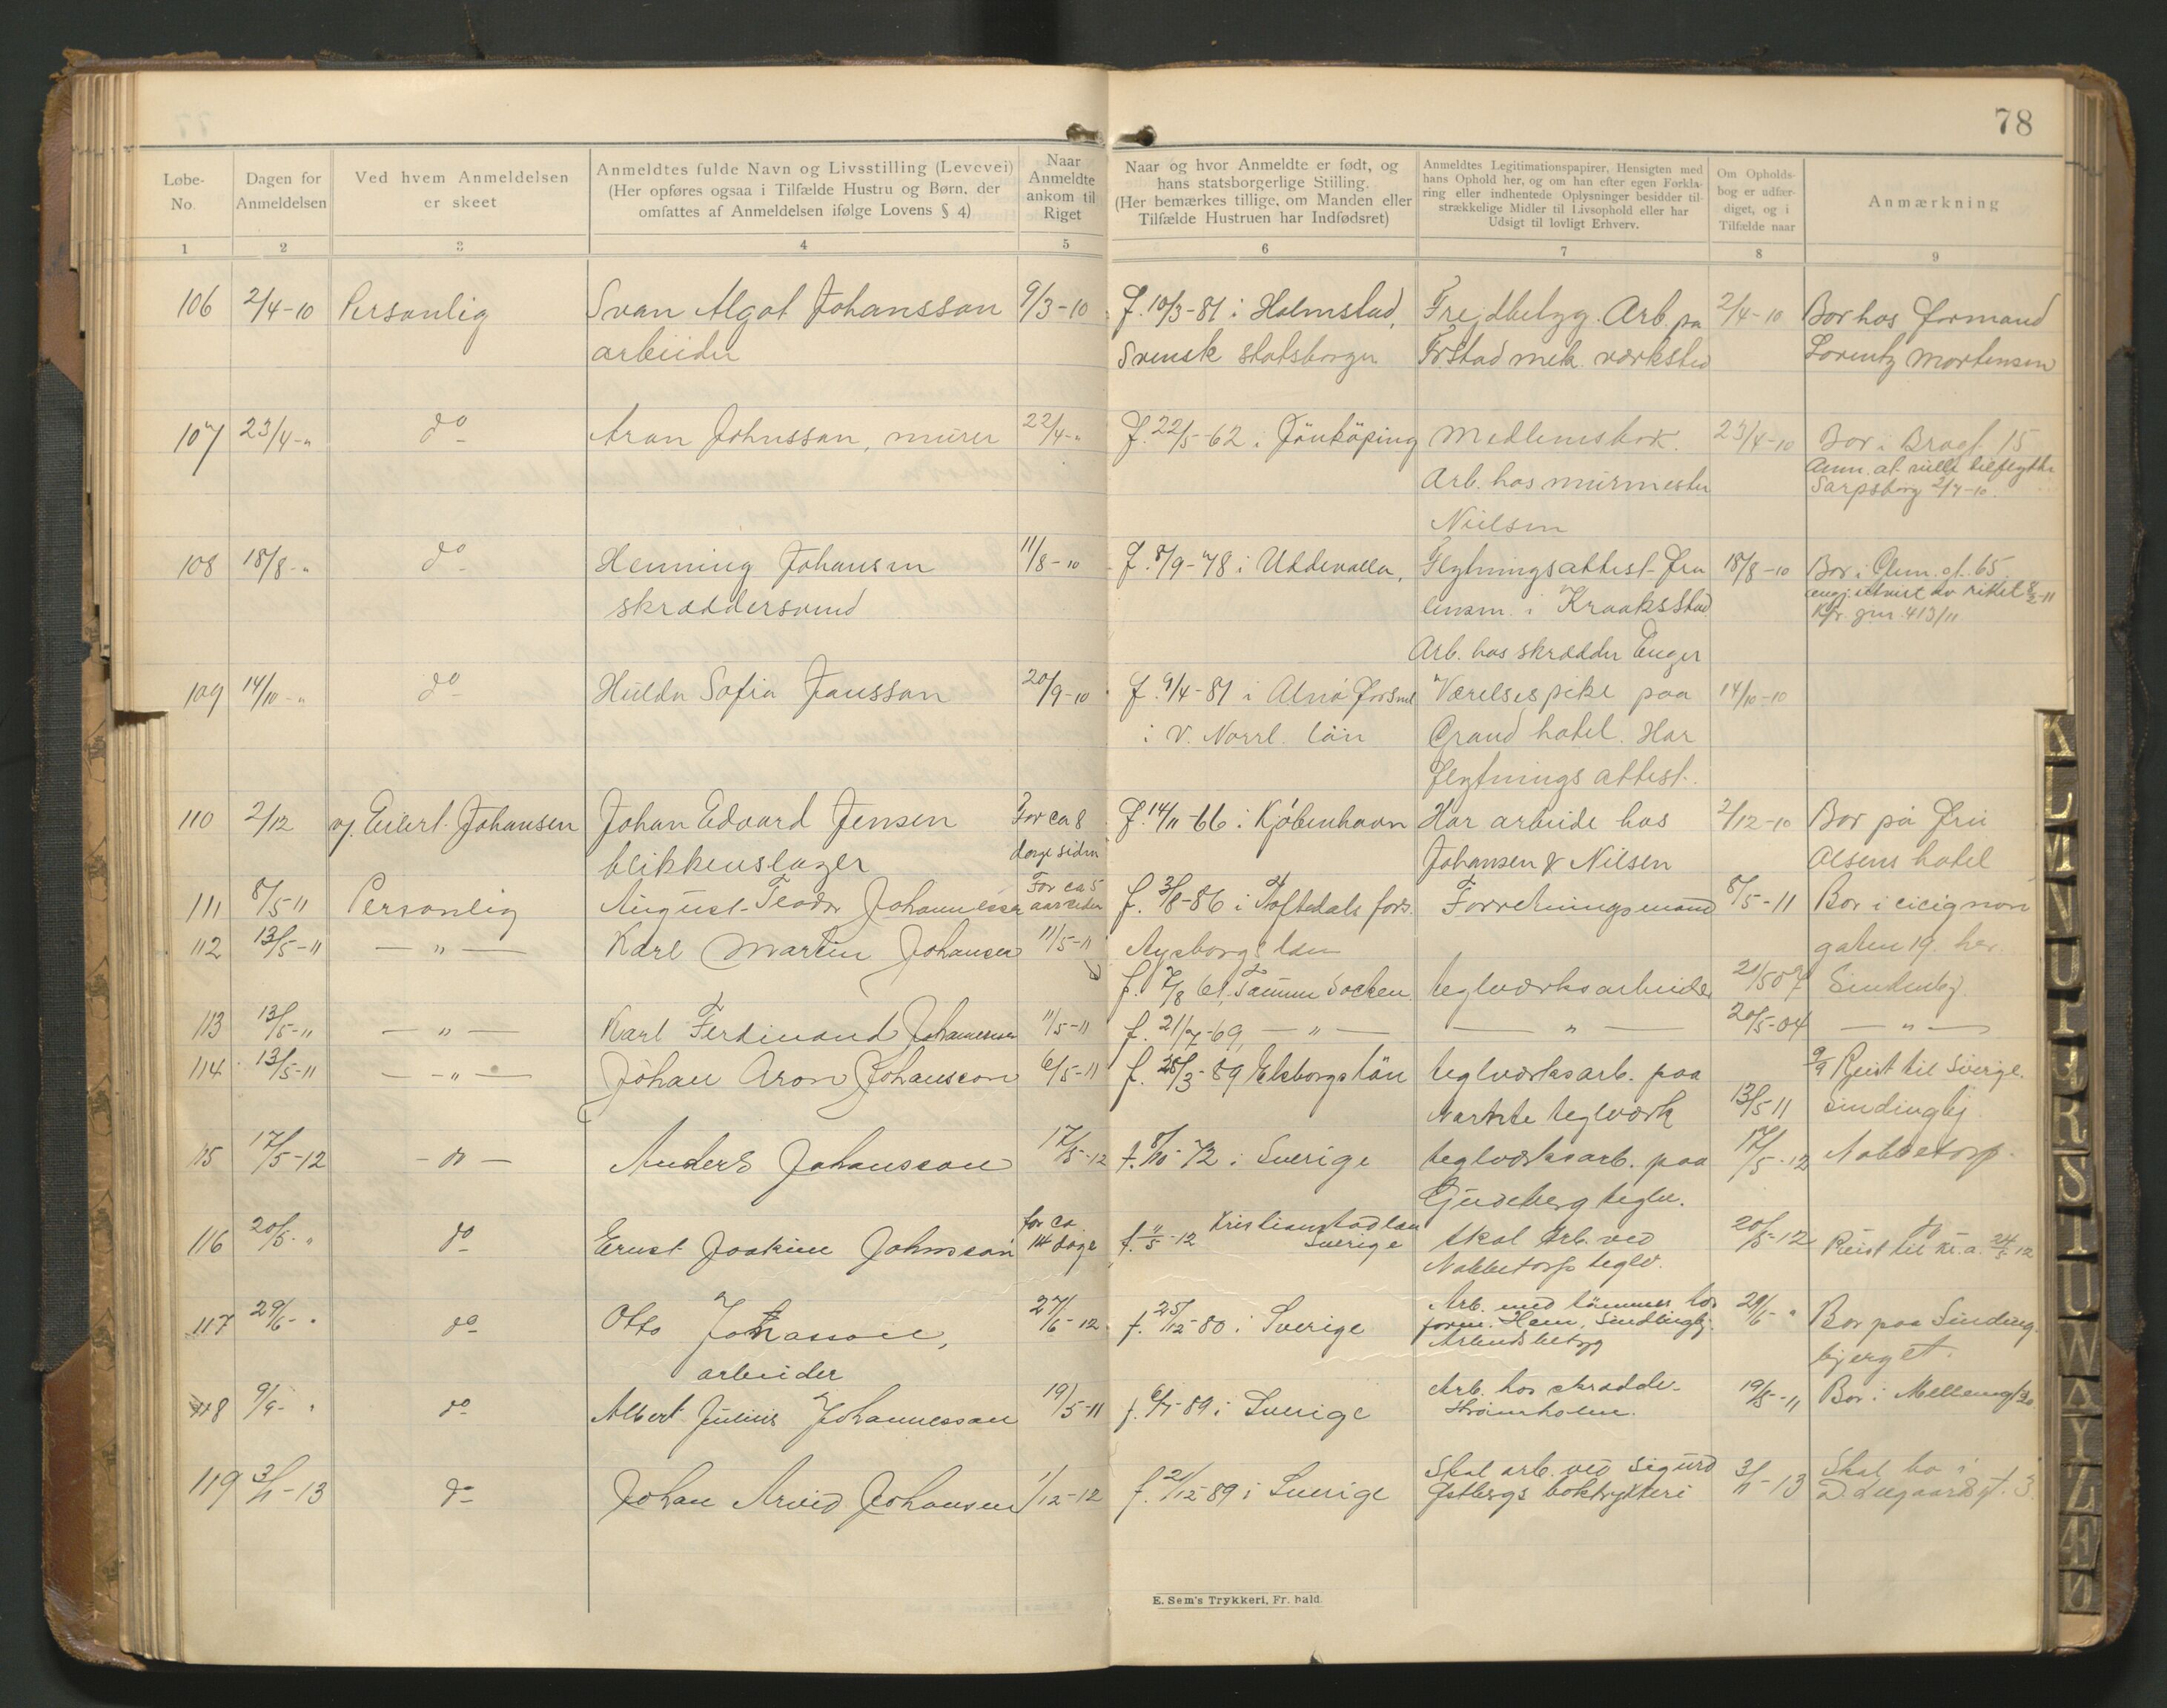 78
Løbe-
No.
Dagen for
Anmeldelsen
Ved hvem Anmeldelsen
er skeet
Anmeldtes fulde Navn og Livsstilling (Levevei)
(Her opføres ogsaa i Tilfælde Hustru og Børn, der
omfattes af Anmeldelsen ifølge Lovens § 4)
Naar
Anmeldte
ankom til
Riget
Naar og hvor Anmeldte er født, og
hans statsborgerlige Stilling.
(Her bemærkes tillige, om Manden eller
Tilfælde Hustruen har Indfødsret)
Anmeldtes Legitimationspapirer, Hensigten med
hans Ophold her, og om han efter egen Forkla-
ring eller indhentede Oplysninger besidder til-
strækkelige Midler til Livsophold eller har
Udsigt til lovligt Erhverv.
Om Opholds-
bog er udfær-
diget, og i
Tilfælde naar
Anmærkning
1 2 3 4 5 6 7 8 9
106 2/4-10 Personlig Svan Algot Johansson 9/3-10 f. 10/3-81 i Halmstad, Frejdbetyg. Arb. pa 2/4-10 Bor hos formand
arbeider Svensk statsborger Fr.stad mek. værksted Lorentz Mortensen
107 23/4-" do Aron Johnsson, murer 22/4-" f. 22/5-62 i Jönköping Medlemsbok. 23/4-10 Bor i Brogt. 15
Arb. hos murmester Anm. at ville tilflytte
Sarpsborg
Nielsen
108 18/8-" do Henning Johansen 11/8-10 f. 8/9-78 i Uddevalla, Flytningsattest fra 18/8-10 Bor i Glem. gt. 65.
skræddersvend lensm. i Kraakstad utvist av riket
Kfr. gnr. 413/11
Arb. hos skrædder Enger
109 14/10-" do Hulda Sofia Jansson 20/9-10 f. 9/4-81 i Alnö Forsml Værelsespike paa 14/10-10
i V. Norrl. län Grand hotel. Har
flytningsattest.
110 2/12 v/ Eilert Johansen Johan Edvard Jensen For ca 8 f. 14/11-66 i Kjöbenhavn Har arbeide hos 2/12-10 Bor på Fru
blikkenslager dage siden Johansen & Nilsen Olsens hotel
111 8/5 11 Personlig August Teodor Johannesen For ca 5 aar siden f. 3/8-86 i Töftedals fors. Forretningsmand 8/5-11 Bor i cicignon
112 13/5-11 — " — Karl Martin Johansen 11/5-11 lan galen 19. her.
f. 7/8 61. Tanum Socken teglværksarbeider 21/5 07 Sindinbj.
113 13/5-11 — " — Karl Ferdinand Johannessen 11/5-11 f. 21/7-69, — " — — " — 20/5-04 — " —
114 13/5-11 — " — Johan Aron Johansson 6/5-11 f. 28/3-89 Elsborgs län teglværksarb. paa 9/9 Reist til Sverige.
teglværk 13/5 11 Sindingbj.
115 17/5-12 — do — Anders Johansson 17/5-12 f. 8/10-72 i Sverige teglværksarb. paa 17/5-12 Nabbetorp.
Gudeberg teglv.
116 20/5-" do Ernst Joakim Johnsson for ca. 14 dage f. 11/5-12 Kristianstad lan Sverige Skal Arb. ved 20/5-12 Reist til Kr.a. 24/5 12
Nabbetorp teglv.
117 29/6-" do Otto Johansson, 27/6-12 f. 25/12-80 i Sverige Arb. med tømmer hos 29/6-" Bor paa Sinding-
form. Ham, Sindingbj.
Arbeidsbetyg bjerget.
arbeider
118 9/9-" do Albert Julius Johannesson 19/5-11 f. 6/5-89 i Sverige Arb. hos skrædder 19/5-11 Bor i Mellemgt 30
Strømholm.
119 3/1-13 do Johan Arvid Johansen 1/12-12 f. 21/12-89 i Sverige Skal arb. ved Sigurd 3/1-13 Skal bo i
Østbergs boktrykkeri gt. 3.
E. Sem's Trykkeri, Fr. hald.
K
L
M
N
O
P
R
S
T
U
W
A
Y
Z
Æ
Ø